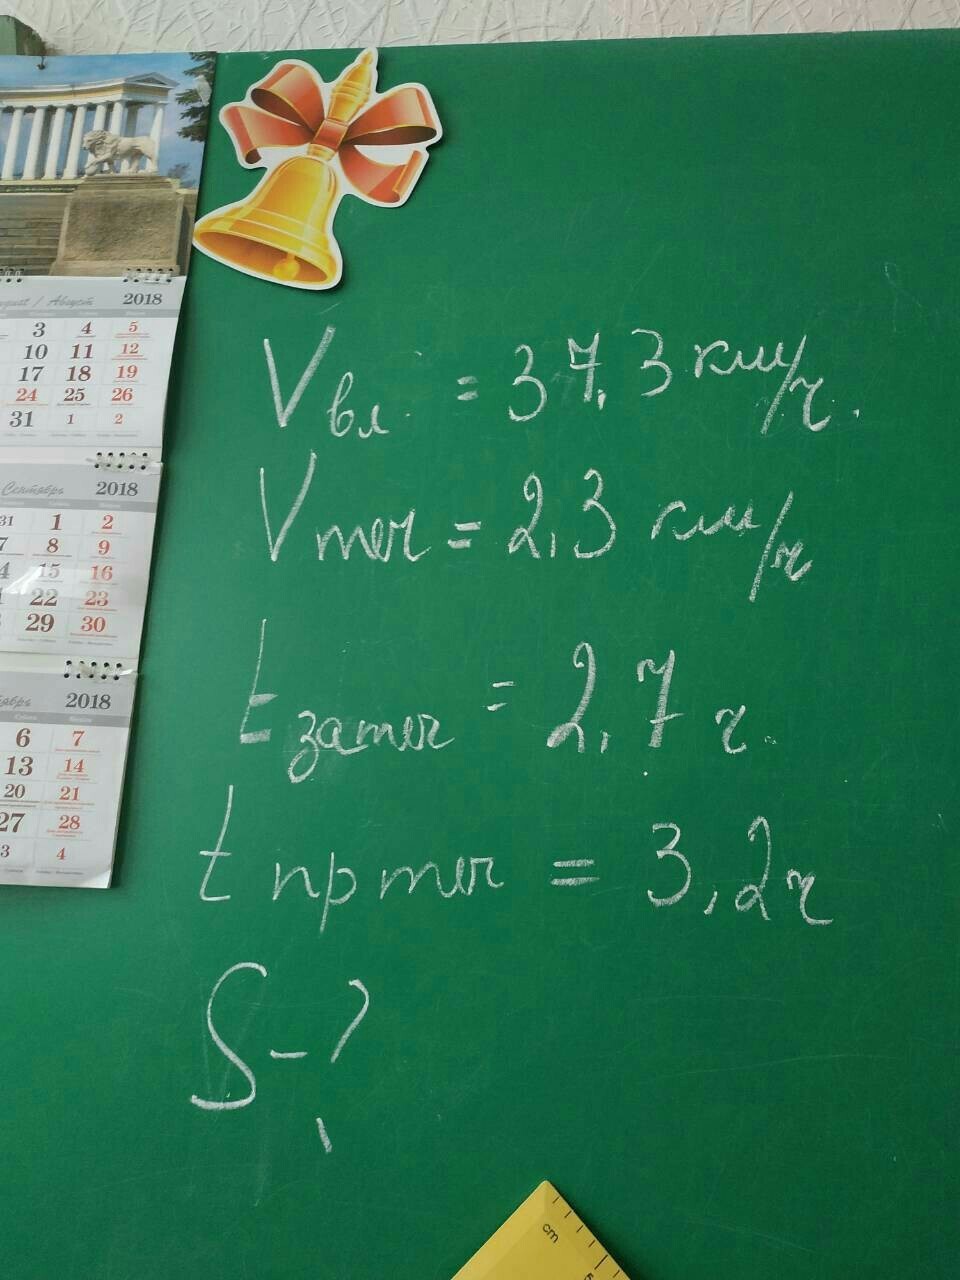 August / Август 2018
3 4 5
10 11 12
17 18 19
24 25 26
31 1 2
Сентябрь 2018
31 1 2
7 8 9
4 15 16
22 23
29 30
2018
6 7
13 14
20 21
27 28
3 4
Vвл. = 37,3 км/ч.
Vтеч = 2,3 км/ч
t за теч = 2,7 ч.
t пр теч = 3,2 ч
S - ?
cm